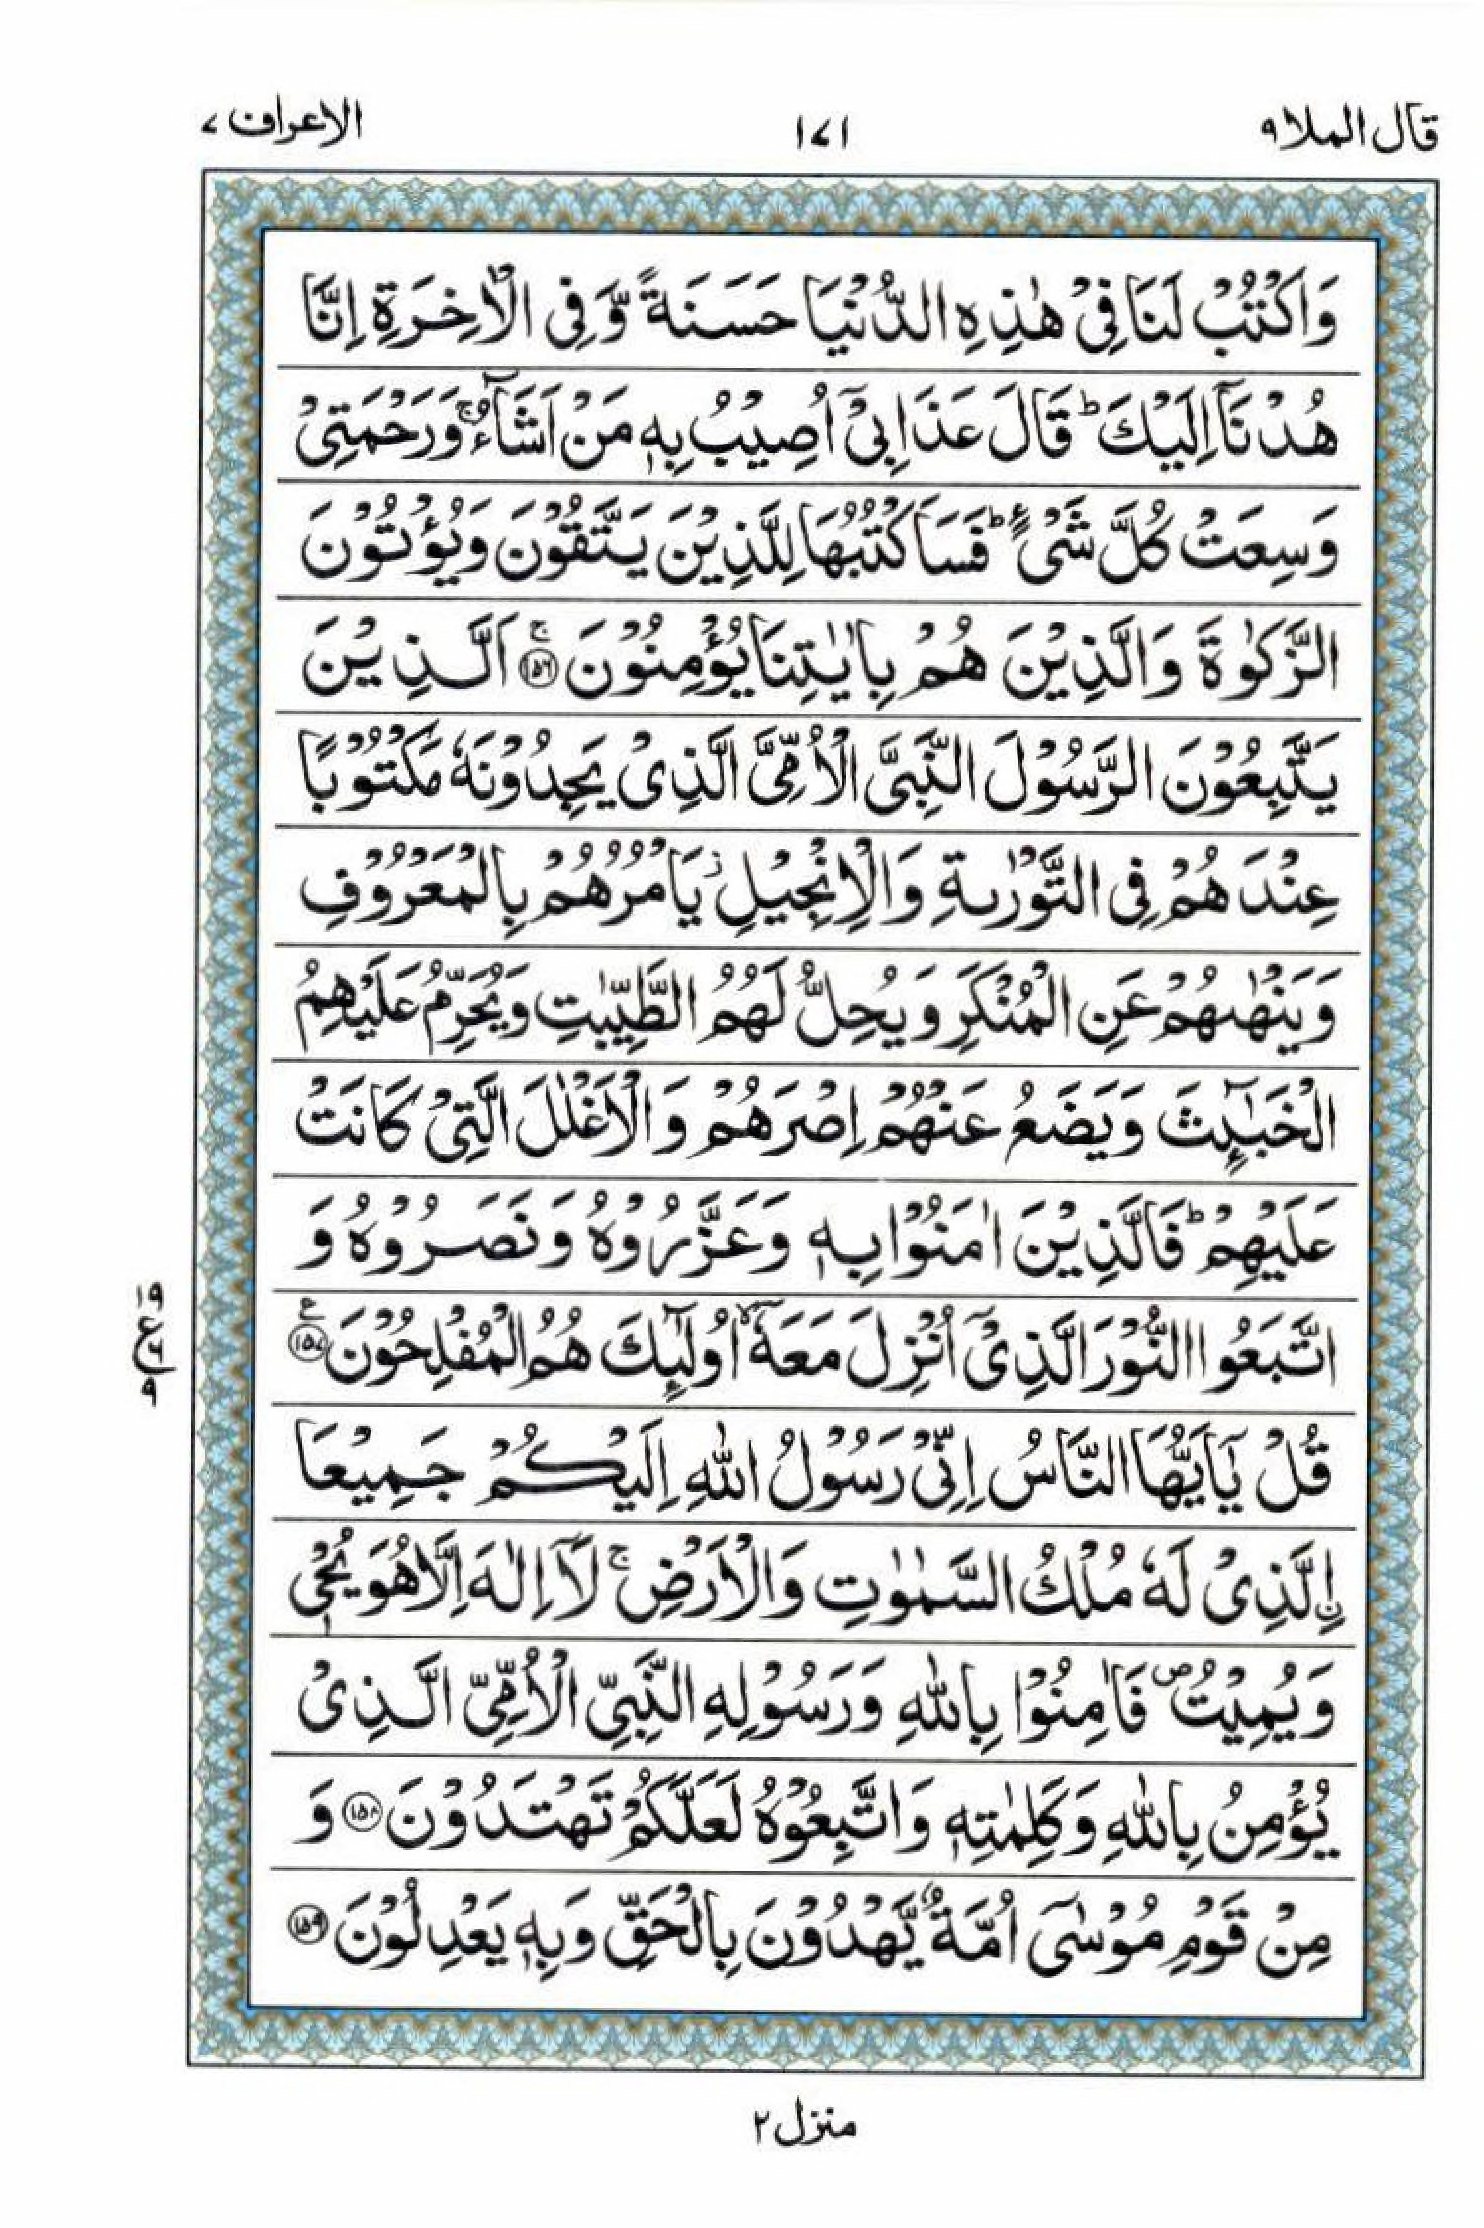 قال الملا ٩
١٧١
الاعراف ٧
وَاكْتُبْ لَنَا فِىْ هٰذِهِ الدُّنْيَا حَسَنَةً وَّ فِى الْاٰخِرَةِ اِنَّا
هُدْنَاۤ اِلَيْكَ ؕ قَالَ عَذَابِىْۤ اُصِيْبُ بِهٖ مَنْ اَشَآءُ ۚ وَرَحْمَتِىْ
وَسِعَتْ كُلَّ شَىْءٍ ؕ فَسَاَكْتُبُهَا لِلَّذِيْنَ يَتَّقُوْنَ وَيُؤْتُوْنَ
الزَّكٰوةَ وَالَّذِيْنَ هُمْ بِاٰيٰتِنَا يُؤْمِنُوْنَ ۚ ﴿١٥٦﴾ اَلَّذِيْنَ
يَتَّبِعُوْنَ الرَّسُوْلَ النَّبِىَّ الْاُمِّىَّ الَّذِىْ يَجِدُوْنَهٗ مَكْتُوْبًا
عِنْدَهُمْ فِى التَّوْرٰىةِ وَالْاِنْجِيْلِ ز يَاْمُرُهُمْ بِالْمَعْرُوْفِ
وَيَنْهٰىهُمْ عَنِ الْمُنْكَرِ وَيُحِلُّ لَهُمُ الطَّيِّبٰتِ وَيُحَرِّمُ عَلَيْهِمُ
الْخَبٰٓئِثَ وَيَضَعُ عَنْهُمْ اِصْرَهُمْ وَالْاَغْلٰلَ الَّتِىْ كَانَتْ
عَلَيْهِمْ ؕ فَالَّذِيْنَ اٰمَنُوْا بِهٖ وَعَزَّرُوْهُ وَنَصَرُوْهُ وَ
اتَّبَعُوا النُّوْرَ الَّذِىْۤ اُنْزِلَ مَعَهٗۤ ۙ اُولٰٓئِكَ هُمُ الْمُفْلِحُوْنَ ع ﴿١٥٧﴾
١٩
ع
٦
٩
قُلْ يٰۤاَيُّهَا النَّاسُ اِنِّىْ رَسُوْلُ اللّٰهِ اِلَيْكُمْ جَمِيْعَا
ۨالَّذِىْ لَهٗ مُلْكُ السَّمٰوٰتِ وَالْاَرْضِ ۚ لَاۤ اِلٰهَ اِلَّا هُوَ يُحْىٖ
وَيُمِيْتُ ۪ فَاٰمِنُوْا بِاللّٰهِ وَرَسُوْلِهِ النَّبِىِّ الْاُمِّىِّ الَّذِىْ
يُؤْمِنُ بِاللّٰهِ وَكَلِمٰتِهٖ وَاتَّبِعُوْهُ لَعَلَّكُمْ تَهْتَدُوْنَ ﴿١٥٨﴾ وَ
مِنْ قَوْمِ مُوْسٰٓى اُمَّةٌ يَّهْدُوْنَ بِالْحَقِّ وَبِهٖ يَعْدِلُوْنَ ﴿١٥٩﴾
منزل ٢